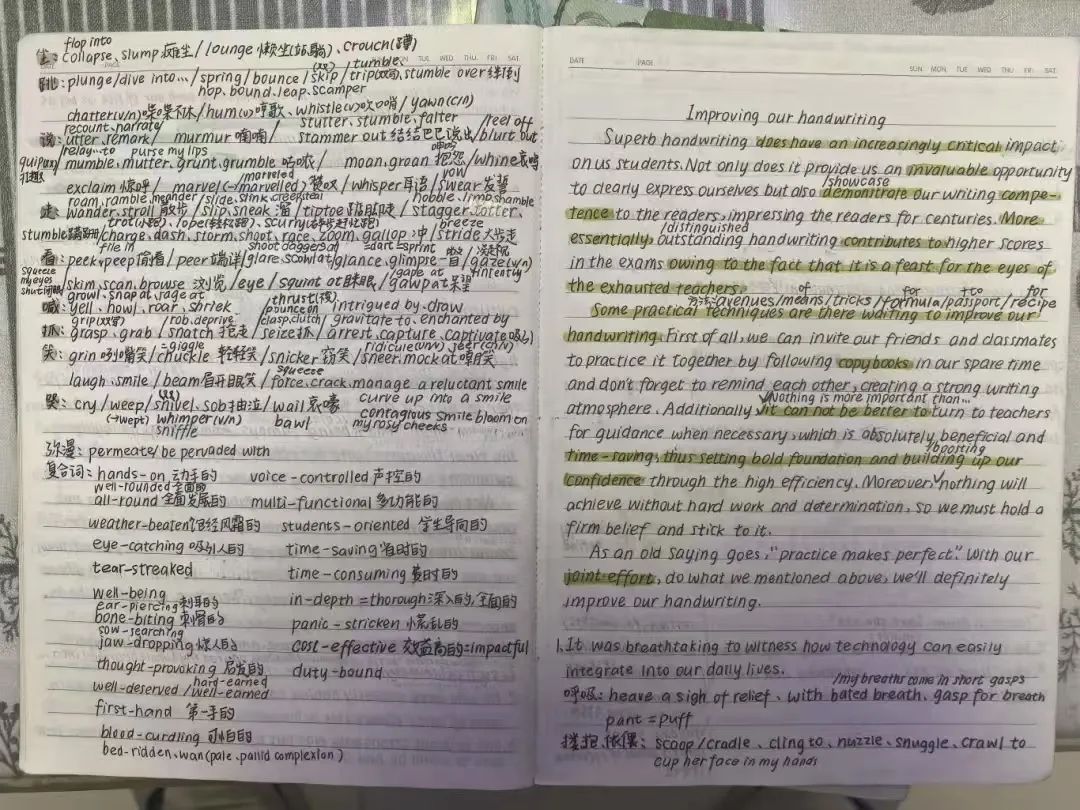 flop into
坐: collapse、slump 瘫坐 / lounge 懒坐(站躺)、crouch(蹲)
(双) tumble
跳: plunge/dive into... /spring/bounce/skip/trip(双写)、stumble over 绊倒
hop、bound、leap、scamper
chatter(v/n)喋喋不休/hum(v)哼歌、whistle(v)吹口哨/yawn(c/n)
recount、narrate stutter、stumble、falter /reel off
说: utter、remark/ murmur 喃喃/ stammer out 结结巴巴说出/blurt out
relay...to purse my lips 呻吟
mumble、mutter、grunt、grumble 咕哝/ moan、groan 抱怨/whine哀鸣
marveled vow
exclaim 惊呼/ marvel(→marvelled)赞叹/whisper耳语/swear发誓
roam、ramble、meander /slide、slink、creep、steal hobble、limp、shamble
走: wander、stroll 散步/slip、sneak 溜/tiptoe 踮脚走/stagger、totter、
trot(小跑)、lope(轻松跑)、scurry(碎步赶忙跑) breeze
stumble蹒跚/charge、dash、storm、shoot、race、zoom、gallop 冲/stride大步走
file in shoot daggers at =dart=sprint 凝视
看: peek、peep偷看/peer端详/glare、scowl at/glance、glimpse一瞥/gaze(v/n)
squeeze my eyes shut gape at intently
skim、scan、browse 浏览/eye/squint at眯眼/gawp at呆望
growl、snap at、rage at
喊: yell、howl、roar、shriek /thrust(塞) intrigued by、draw
grip(双写) / rob、deprive pounce on
clasp、clutch/ gravitate to、enchanted by
抓: grasp、grab、snatch 抢走/seize抓/arrest、capture、captivate吸引
=giggle ridicule(n/v) jeer(c/n)
笑: grin 咧嘴笑/chuckle 轻轻笑/snicker 窃笑/sneer、mock at嘲笑
squeeze
laugh、smile/beam眉开眼笑/force、crack、manage a reluctant smile
(双) curve up into a smile
哭: cry/weep/snivel、sob抽泣/wail哀嚎 contagious smile bloom on
(→wept) whimper(v/n) bawl my rosy cheeks
sniffle
弥漫: permeate/be pervaded with
复合词: hands-on 动手的 voice-controlled 声控的
well-rounded 全面的
all-round 全面发展的 multi-functional 多功能的
weather-beaten饱经风霜的 students-oriented 学生导向的
eye-catching 吸引人的 time-saving 省时的
tear-streaked time-consuming 费时的
well-being in-depth =thorough深入的,全面的
ear-piercing 刺耳的
bone-biting 刺骨的 panic-stricken 慌乱的
sow-searching
jaw-dropping 惊人的 cost-effective 效益高的=impactful
thought-provoking 启发的 duty-bound
hard-earned
well-deserved /well-earned
first-hand 第一手的
blood-curdling 可怕的
bed-ridden、wan(pale、pallid complexion)
DATE PAGE SUN MON TUE WED THU FRI SAT
Improving our handwriting
Superb handwriting does have an increasingly critical impact
on us students. Not only does it provide us an invaluable opportunity
/showcase
to clearly express ourselves but also demonstrate our writing compe-
tence to the readers, impressing the readers for centuries. More
/distinguished
essentially, outstanding handwriting contributes to higher scores
in the exams owing to the fact that it is a feast for the eyes of
the exhausted teachers.
of for +to for
方法:avenues/means/tricks/formula/passport/recipe
Some practical techniques are there waiting to improve our
handwriting. First of all, we can invite our friends and classmates
to practice it together by following copybooks in our spare time
and don't forget to remind each other, creating a strong writing
Nothing is more important than...
atmosphere. Additionally, it can not be better to turn to teachers
for guidance when necessary, which is absolutely beneficial and
/boosting
time-saving, thus setting bold foundation and building up our
confidence through the high efficiency. Moreover, nothing will
achieve without hard work and determination, so we must hold a
firm belief and stick to it.
As an old saying goes, "practice makes perfect". With our
joint effort, do what we mentioned above, we'll definitely
improve our handwriting.
1. It was breathtaking to witness how technology can easily
integrate into our daily lives.
/my breaths come in short gasps
呼吸: heave a sigh of relief、with bated breath、gasp for breath
pant = puff
拥抱、依偎: scoop/cradle、cling to、nuzzle、snuggle、crawl to
cup her face in my hands